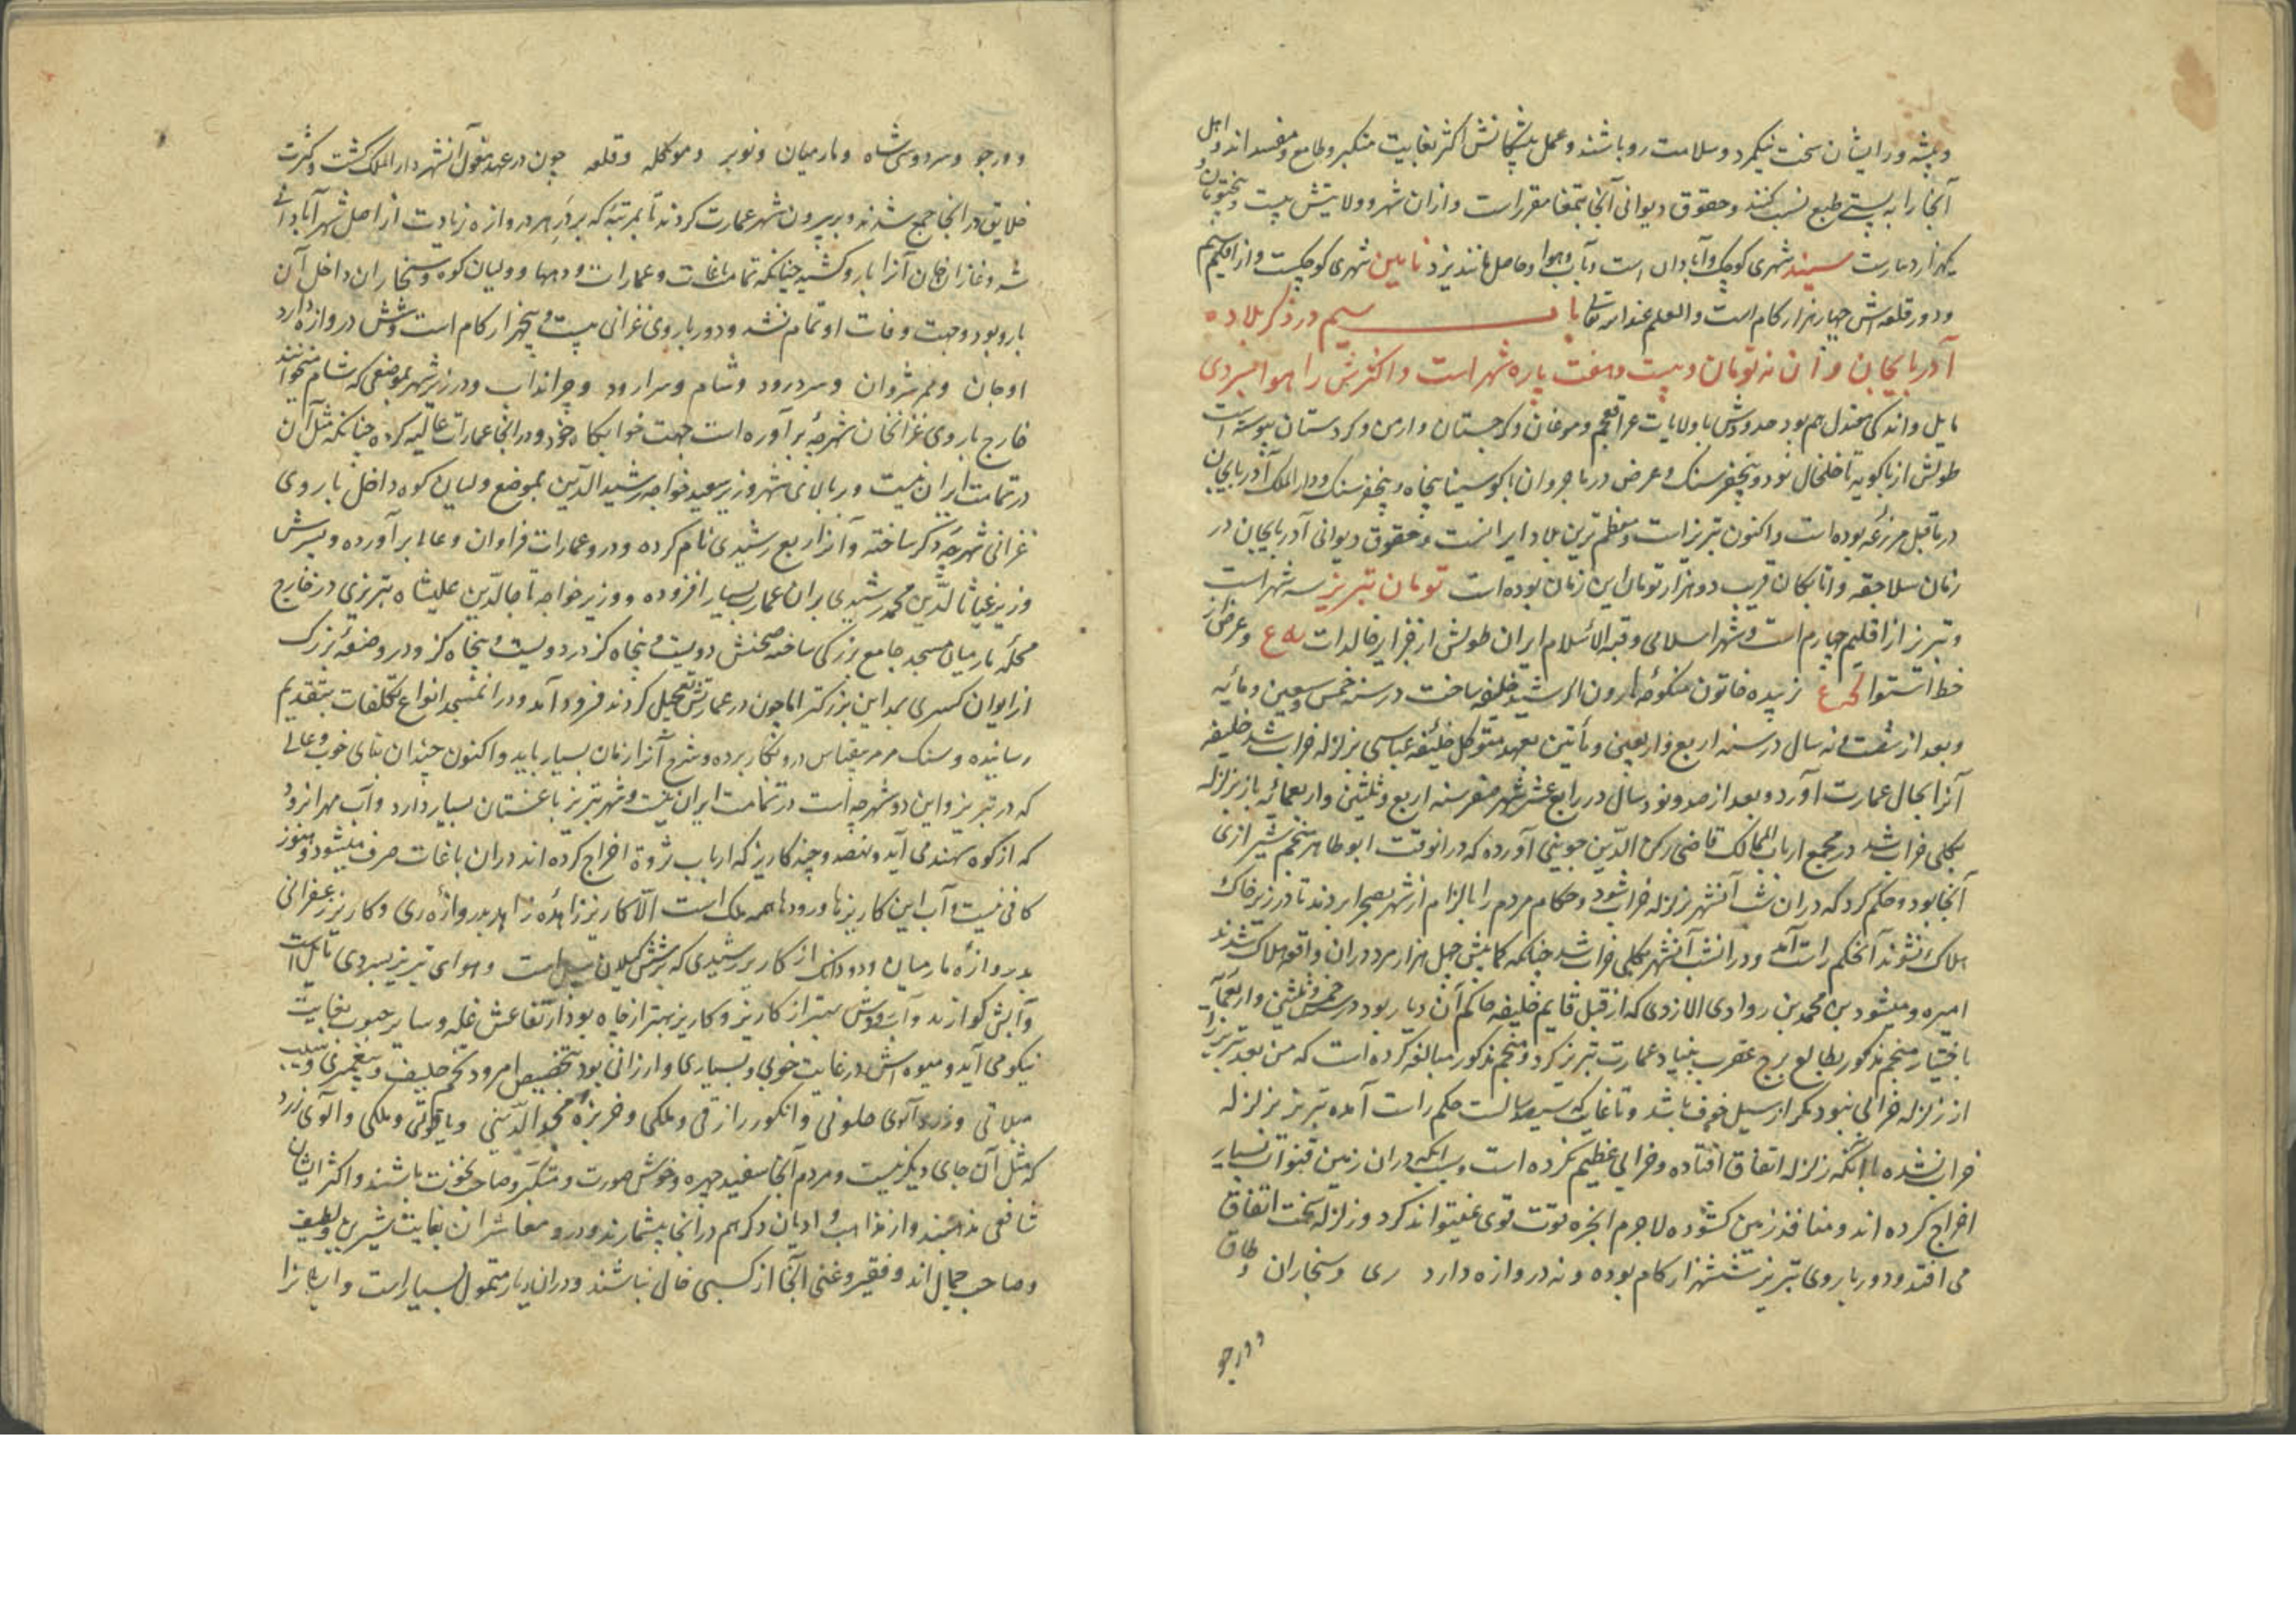 و پیشه ور ایشان سخت نیکمرد و سلامت رو باشند و عمل پیشگانش اکثر بغایت متکبر و طامع و مفسد اند و اهل
آنجا را به پستی طبع نسبت کنند و حقوق دیوانی آنجا بتمغا مقرر است و از ان شهر و ولایتش بیست و پنج تومان و
یکهزار دینارست میبد شهری کوچک و آبادان است و آب و هوا و حاصل مانند یزد نایین شهری کوچکست و از اقلیم سیم
و دور قلعه اش چهار هزار کام است و العلم عند الله تعالی باب سیم در ذکر بلاد ه
آذربایجان و آن نه تومان و بیست و هفت پاره شهر است و اکثرش را هوا بسردی
مایل و اندکی معتدل هم بود حدودش با ولایات عراق عجم و موغان و کرجستان و ارمن و کردستان پیوسته است
طولش از باکویه تا خلخال نود و پنجفرسنک و عرض در باجروان تا کوه سینا پنجاه و پنجفرسنک و دار الملک آذربایجان
در ما قبل مرزغه بوده است و اکنون تبریز است و معظم ترین بلاد ایرانست و حقوق دیوانی آذربایجان در
زمان سلاجقه و اتابکان قریب دو هزار تومان این زمان بوده است تومان تبریز سه شهر است
و تبریز از اقلیم چهارم است و شهر اسلامی و قبة الاسلام ایران طولش از جزایر خالدات و عرض از
خط استوا زبیده خاتون منکوحه هارون الرشید خلیفه ساخت در سنه خمس و سبعین و مائیه
و بعد از شصت و نه سال در سنه اربع و اربعین و مأتین بعهد متوکل خلیفه عباسی بزلزله خراب شد خلیفه
آنرا بحال عمارت آورد و بعد از صد و نود سال در رابع عشر شهر صفر سنه اربع و ثلثین و اربعمائه باز بزلزله
بکلی خراب شد در مجمع ارباب الممالک قاضی رکن الدین جوینی آورده که در انوقت ابو طاهر منجم شیرازی
آنجا بود و حکم کرد که در ان شب آنشهر بزلزله خراب شود و حکام مردم را بالزام از شهر بصحرا بردند تا در زیر خاک
هلاک نشوند آنحکم راست آمد و در انشب آنشهر بکلی خراب شد چنانکه کمابیش چهل هزار مرد در ان واقعه هلاک شدند
امیر و هسودین بن محمد بن روادی الازدی که از قبل قایم خلیفه حاکم آن دیار بود در خمس و ثلثین و اربعمائه
باختیار منجم مذکور بطالع برج عقرب بنیاد عمارت تبریز کرد و منجم مذکور مبالغه کرده است که من بعد تبریز را
از زلزله خرابی نبود مکر از سیل خوف باشد و تا غایت که سیصد سالست حکم راست آمده تبریز بزلزله
خراب نشده با آنکه زلزله اتفاق افتاده و خرابی عظیم نکرده است و سبب آنکه در ان زمین قنوات بسیار
اخراج کرده اند و منافذ زمین کشوده لاجرم ابخره بقوت قوی نمیتواند کرد و زلزله سخت اتفاق
می افتد و دور باروی تبریز ششهزار کام بوده و نه دروازه دارد ری و سنجاران و طاق
و درجو
و درجو و سردوشی شاه و نارمیان و نوبر و موکله و قلعه چون در عهد مغول آنشهر دار الملک کشت و کثرت
خلایق در انجا جمع شدند و بر بیرون شهر عمارت کردند تا بمرتبه که بر در هر دروازه زیادت از اصل شهر آبادانی
شد و غازان خان آنرا بارو کشید چنانکه تمامت باغات و عمارات و دهها و ولیان کوه و سنجاران داخل آن
بارو بود و جهت وفات او تمام نشد و دور باروی غزانی بیست و پنجهزار کام است و شش دروازه دارد
اوجان و اهر شروان و سردرود و شام و سرارود و چرانداب و در زیر شهر بموضعی که شام میخوانند
خارج باروی غزانخان شهرچه بر آورده است جهت خوابکاه خود و در انجا عمارات عالیه کرده چنانکه مثل آن
در تمامت ایران نیست و ر بالای شهر وزیر سعید خواجه رشید الدین بموضع ولیان کوه داخل باروی
غزانی شهرچه دکر ساخته و آنرا ربع رشیدی نام کرده و در و عمارات فراوان و عالی بر آورده و پسرش
وزیر غیاث الدین محمد رشیدی بران عمارت بسیار افزوده و وزیر خواجه تاج الدین علیشاه تبریزی در خارج
محله نارمیان مسجد جامع بزرکی ساخته صحنش دویست و پنجاه کز در دویست و پنجاه کز و در و صفه بزرک
از ایوان کسری مداین بزرکتر اما چون در عمارتش تعجیل کردند فرود آمد و در انمسجد انواع تکلفات بتقدیم
رسانیده و سنک مرمر بیقیاس در و بکار برده و شرح آنرا زمان بسیار باید و اکنون چندان بنای خوب و عالی
که در تبریز و این دو شهرچه است در تمامت ایران نیست و شهر تبریز باغستان بسیار دارد و آب مهرانرود
که از کوه سهند می آید و نهصد و چند کاریز که ارباب ثروة اخراج کرده اند در ان باغات صرف میشود و هنوز
کافی نیست و آب این کاریزها و رودها همه ملک است الا کاریز زاهده زاهد بدروازه ری و کاریز زعفرانی
بدروازه نارمیان و دو دانک از کاریز رشیدی که بر شش کیلان سبیل است و هوای تبریز بسردی مایل است
و آبش کوارنده و آب رودش بهتر از کاریز و کاریز بهتر از چاه بود ارتفاعش غله و سایر حبوب بغایت
نیکو می آید و میوه اش در غایت خوبی و بسیاری و ارزانی بود بتخصیص امرود تخم خلیف و پیغمبری و سیب
سلاتی و زردآلوی حلوانی و انکور رازقی و ملکی و خربزه مجد الدینی و یاقوتی و ملکی و آلوی زرد
که مثل آن جای دیکر نیست و مردم آنجا سفید چهره و خوش صورت و متکبر و صاحب نخوت باشند و اکثر ایشان
شافعی مذهبند و از مذاهب و ادیان دکر هم در انجا بیشمارند و در و معاشران بغایت شیرین و لطیف
و صاحب جمال اند و فقیر و غنی آنجا از کسبی خالی نباشند و در ان دیار متمول بسیار است و ایشانرا